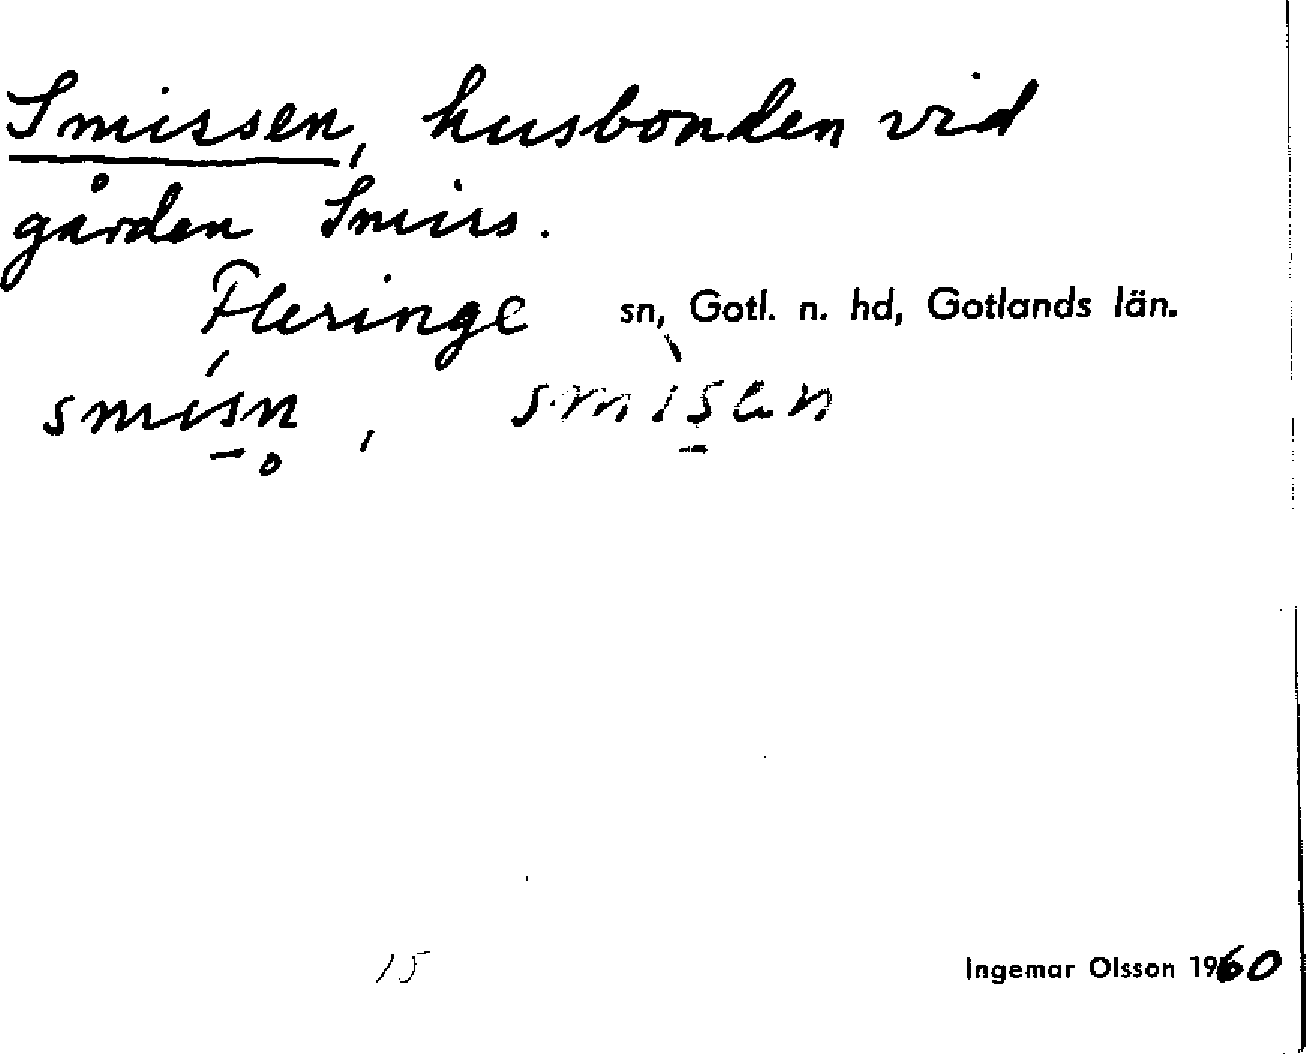 Smissen, husbonden vid
gården Smiss.
Fleringe sn, Gotl. n. hd, Gotlands län.
smi̍s̠n̥, smìs̠en
15 Ingemar Olsson 1960